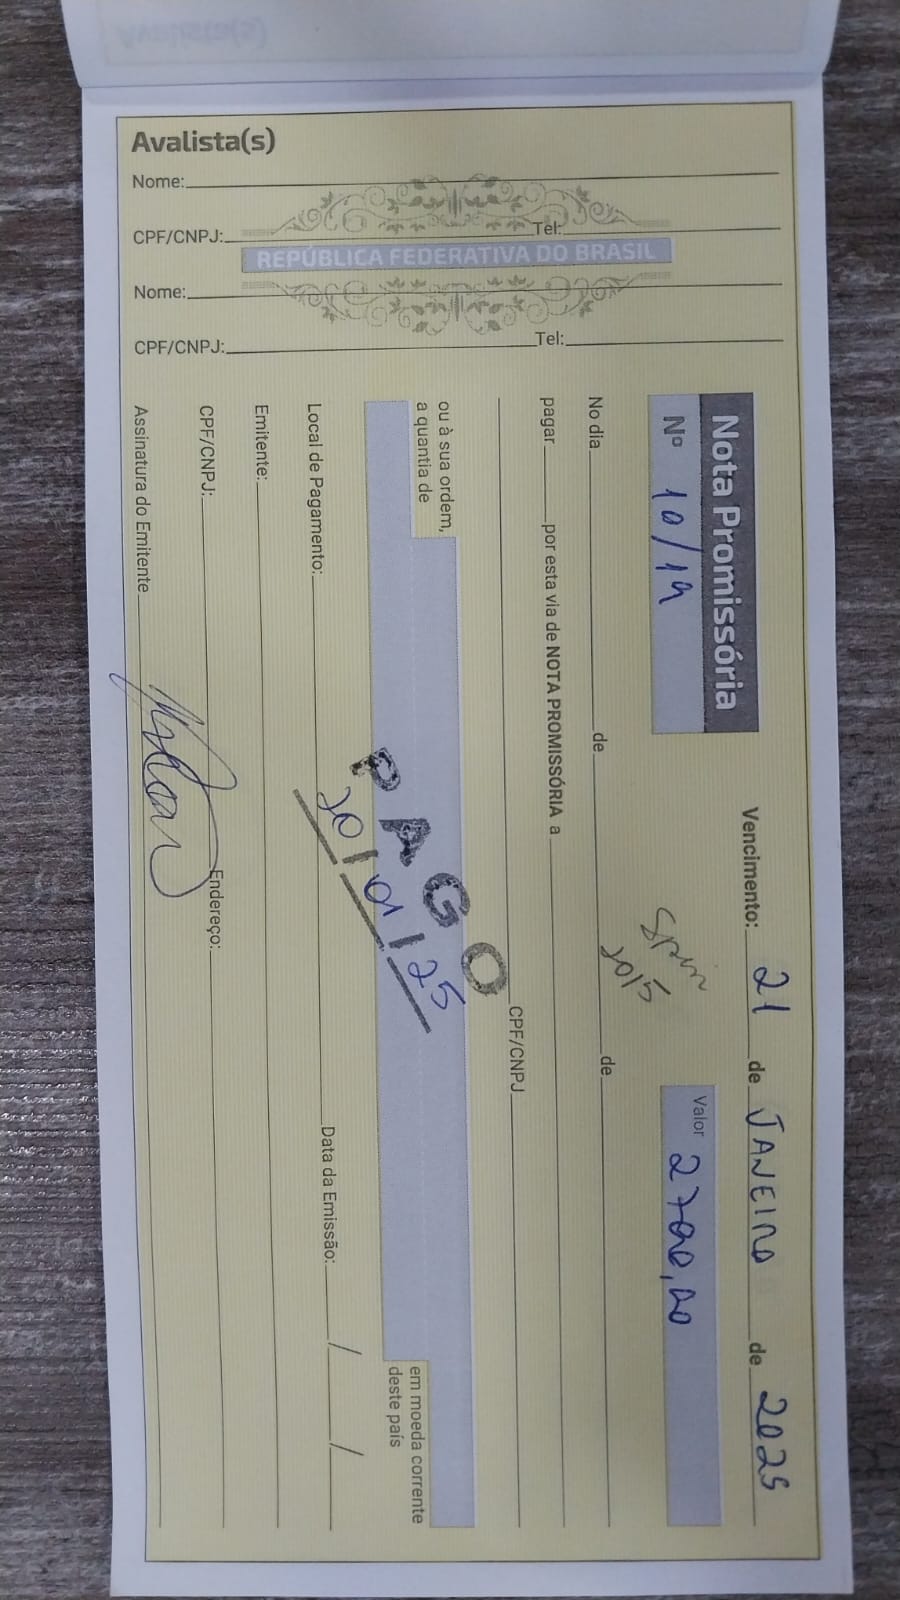 Avalista(s)
Nome:
CPF/CNPJ: Tel:
REPÚBLICA FEDERATIVA DO BRASIL
Nome:
CPF/CNPJ: Tel:
Nota Promissória Vencimento: 21 de JANEIRO de 2025
Nº 10/19 Valor 2700,00
No dia de de
pagar por esta via de NOTA PROMISSÓRIA a
CPF/CNPJ
ou à sua ordem,
a quantia de
em moeda corrente
deste país
PAGO
30/01/25
Local de Pagamento: Data da Emissão: / /
Emitente:
CPF/CNPJ: Endereço:
Assinatura do Emitente